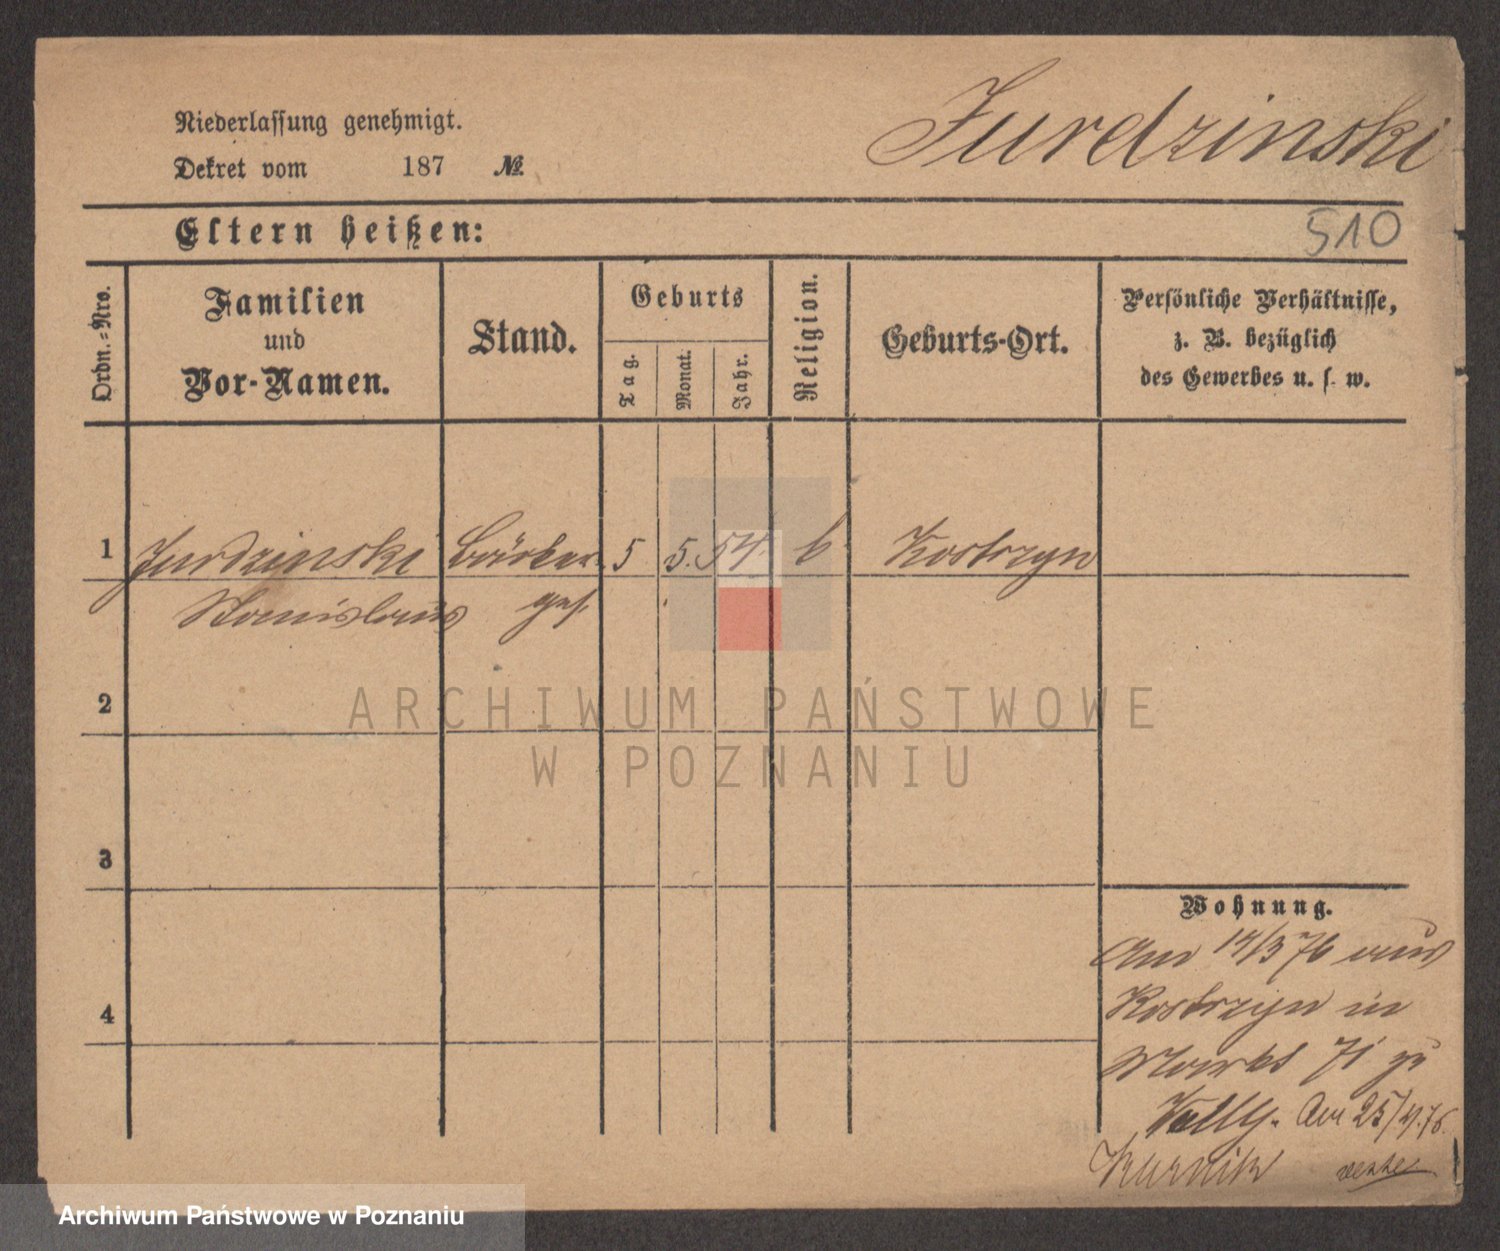 Niederlassung genehmigt.
Dekret vom 187 №
Jurdzinski
Eltern heißen:
510
Ordn.-Nro.
Familien
und
Vor-Namen.
Stand.
Geburts
Tag.
Monat.
Jahr.
Religion.
Geburts-Ort.
Persönliche Verhältnisse,
z. B. bezüglich
des Gewerbes u. s. w.
1 Jurdzinski 5 5. 54. Kostrzyn
Stanislaus ges.
2
3
4
Wohnung.
Am 14/3 76 aus
Kostrzyn in
Markt 71 zu
Am 25/4.76.
Kurnik
ARCHIWUM PAŃSTWOWE
W POZNANIU
Archiwum Państwowe w Poznaniu